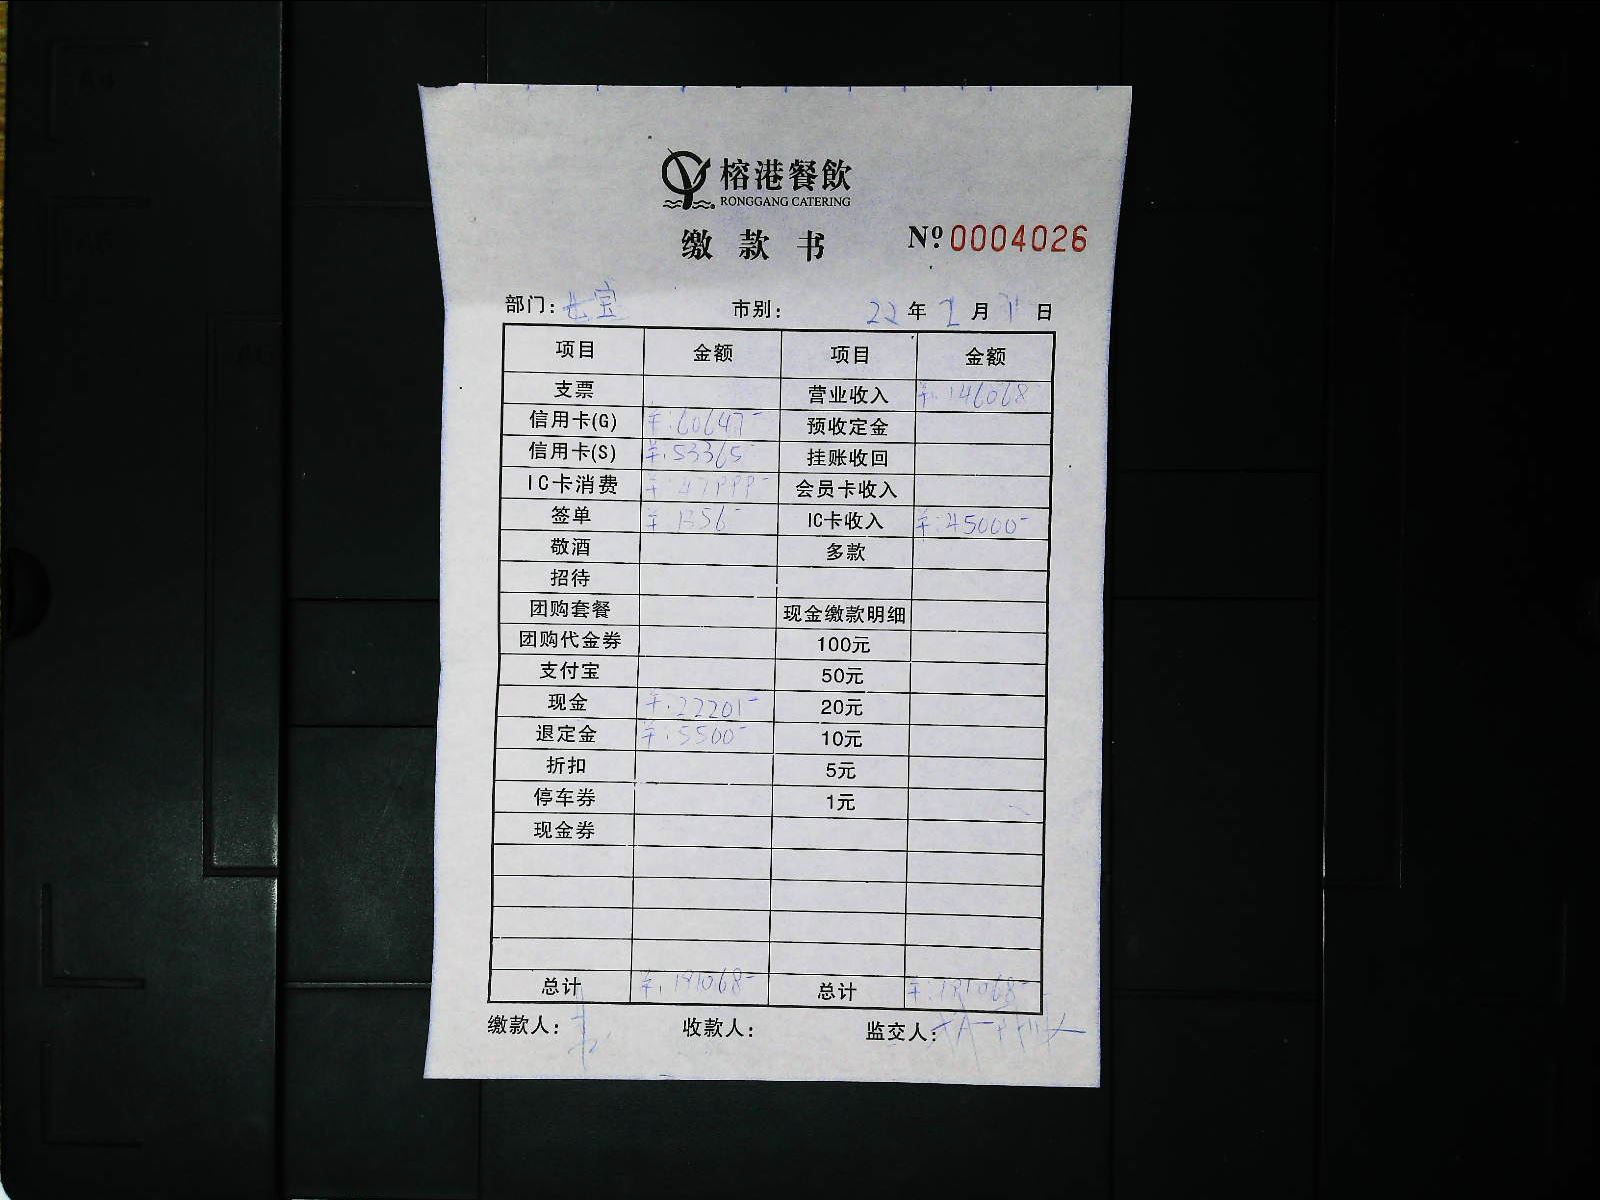 榕港餐飲
RONGGANG CATERING
缴款书 Nº 0004026
部门：七宝 市别： 22 年 月 日
项目 金额 项目 金额
支票 营业收入 ¥:146068
信用卡(G) ¥:60647- 预收定金
信用卡(S) ¥:53365- 挂账收回
IC卡消费 ¥:47999- 会员卡收入
签单 ¥:1356- IC卡收入 ¥:45000-
敬酒 多款
招待
团购套餐 现金缴款明细
团购代金券 100元
支付宝 50元
现金 ¥:22201- 20元
退定金 ¥:5500- 10元
折扣 5元
停车券 1元
现金券
总计 ¥:191068- 总计 ¥:191068-
缴款人： 收款人： 监交人：